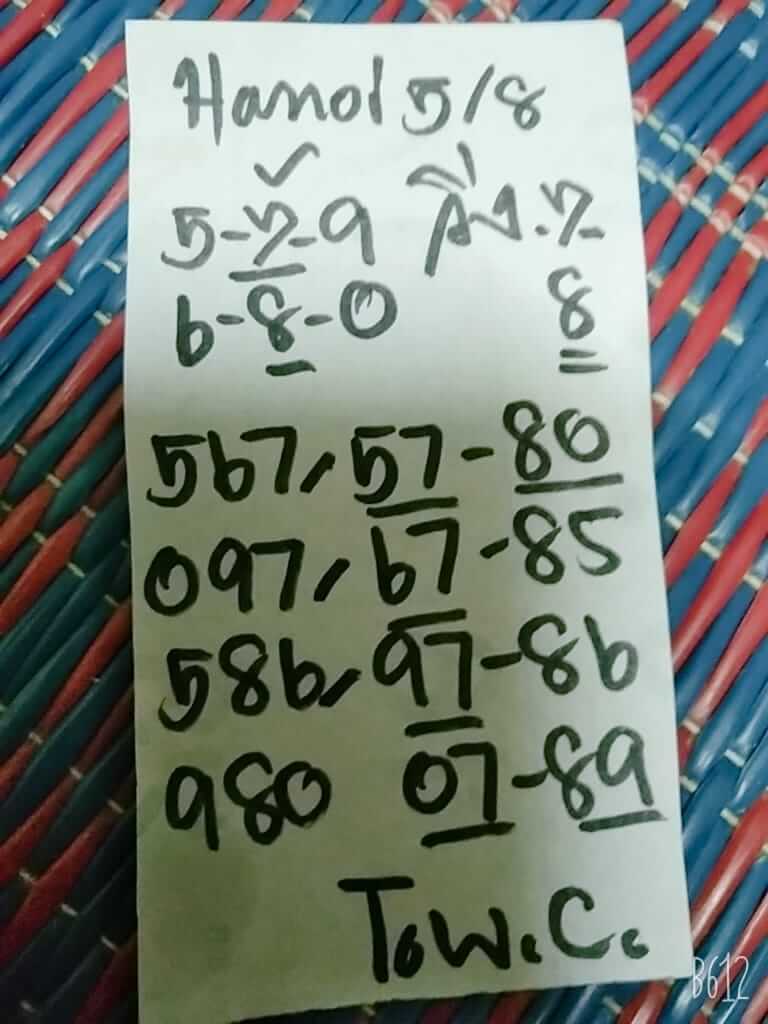 Hanoi 5/8
5-7-9 วิ่ง.7-
6-8-0 8
567, 57-80
097, 67-85
586, 97-86
980 07-89
T.W.C.
B612